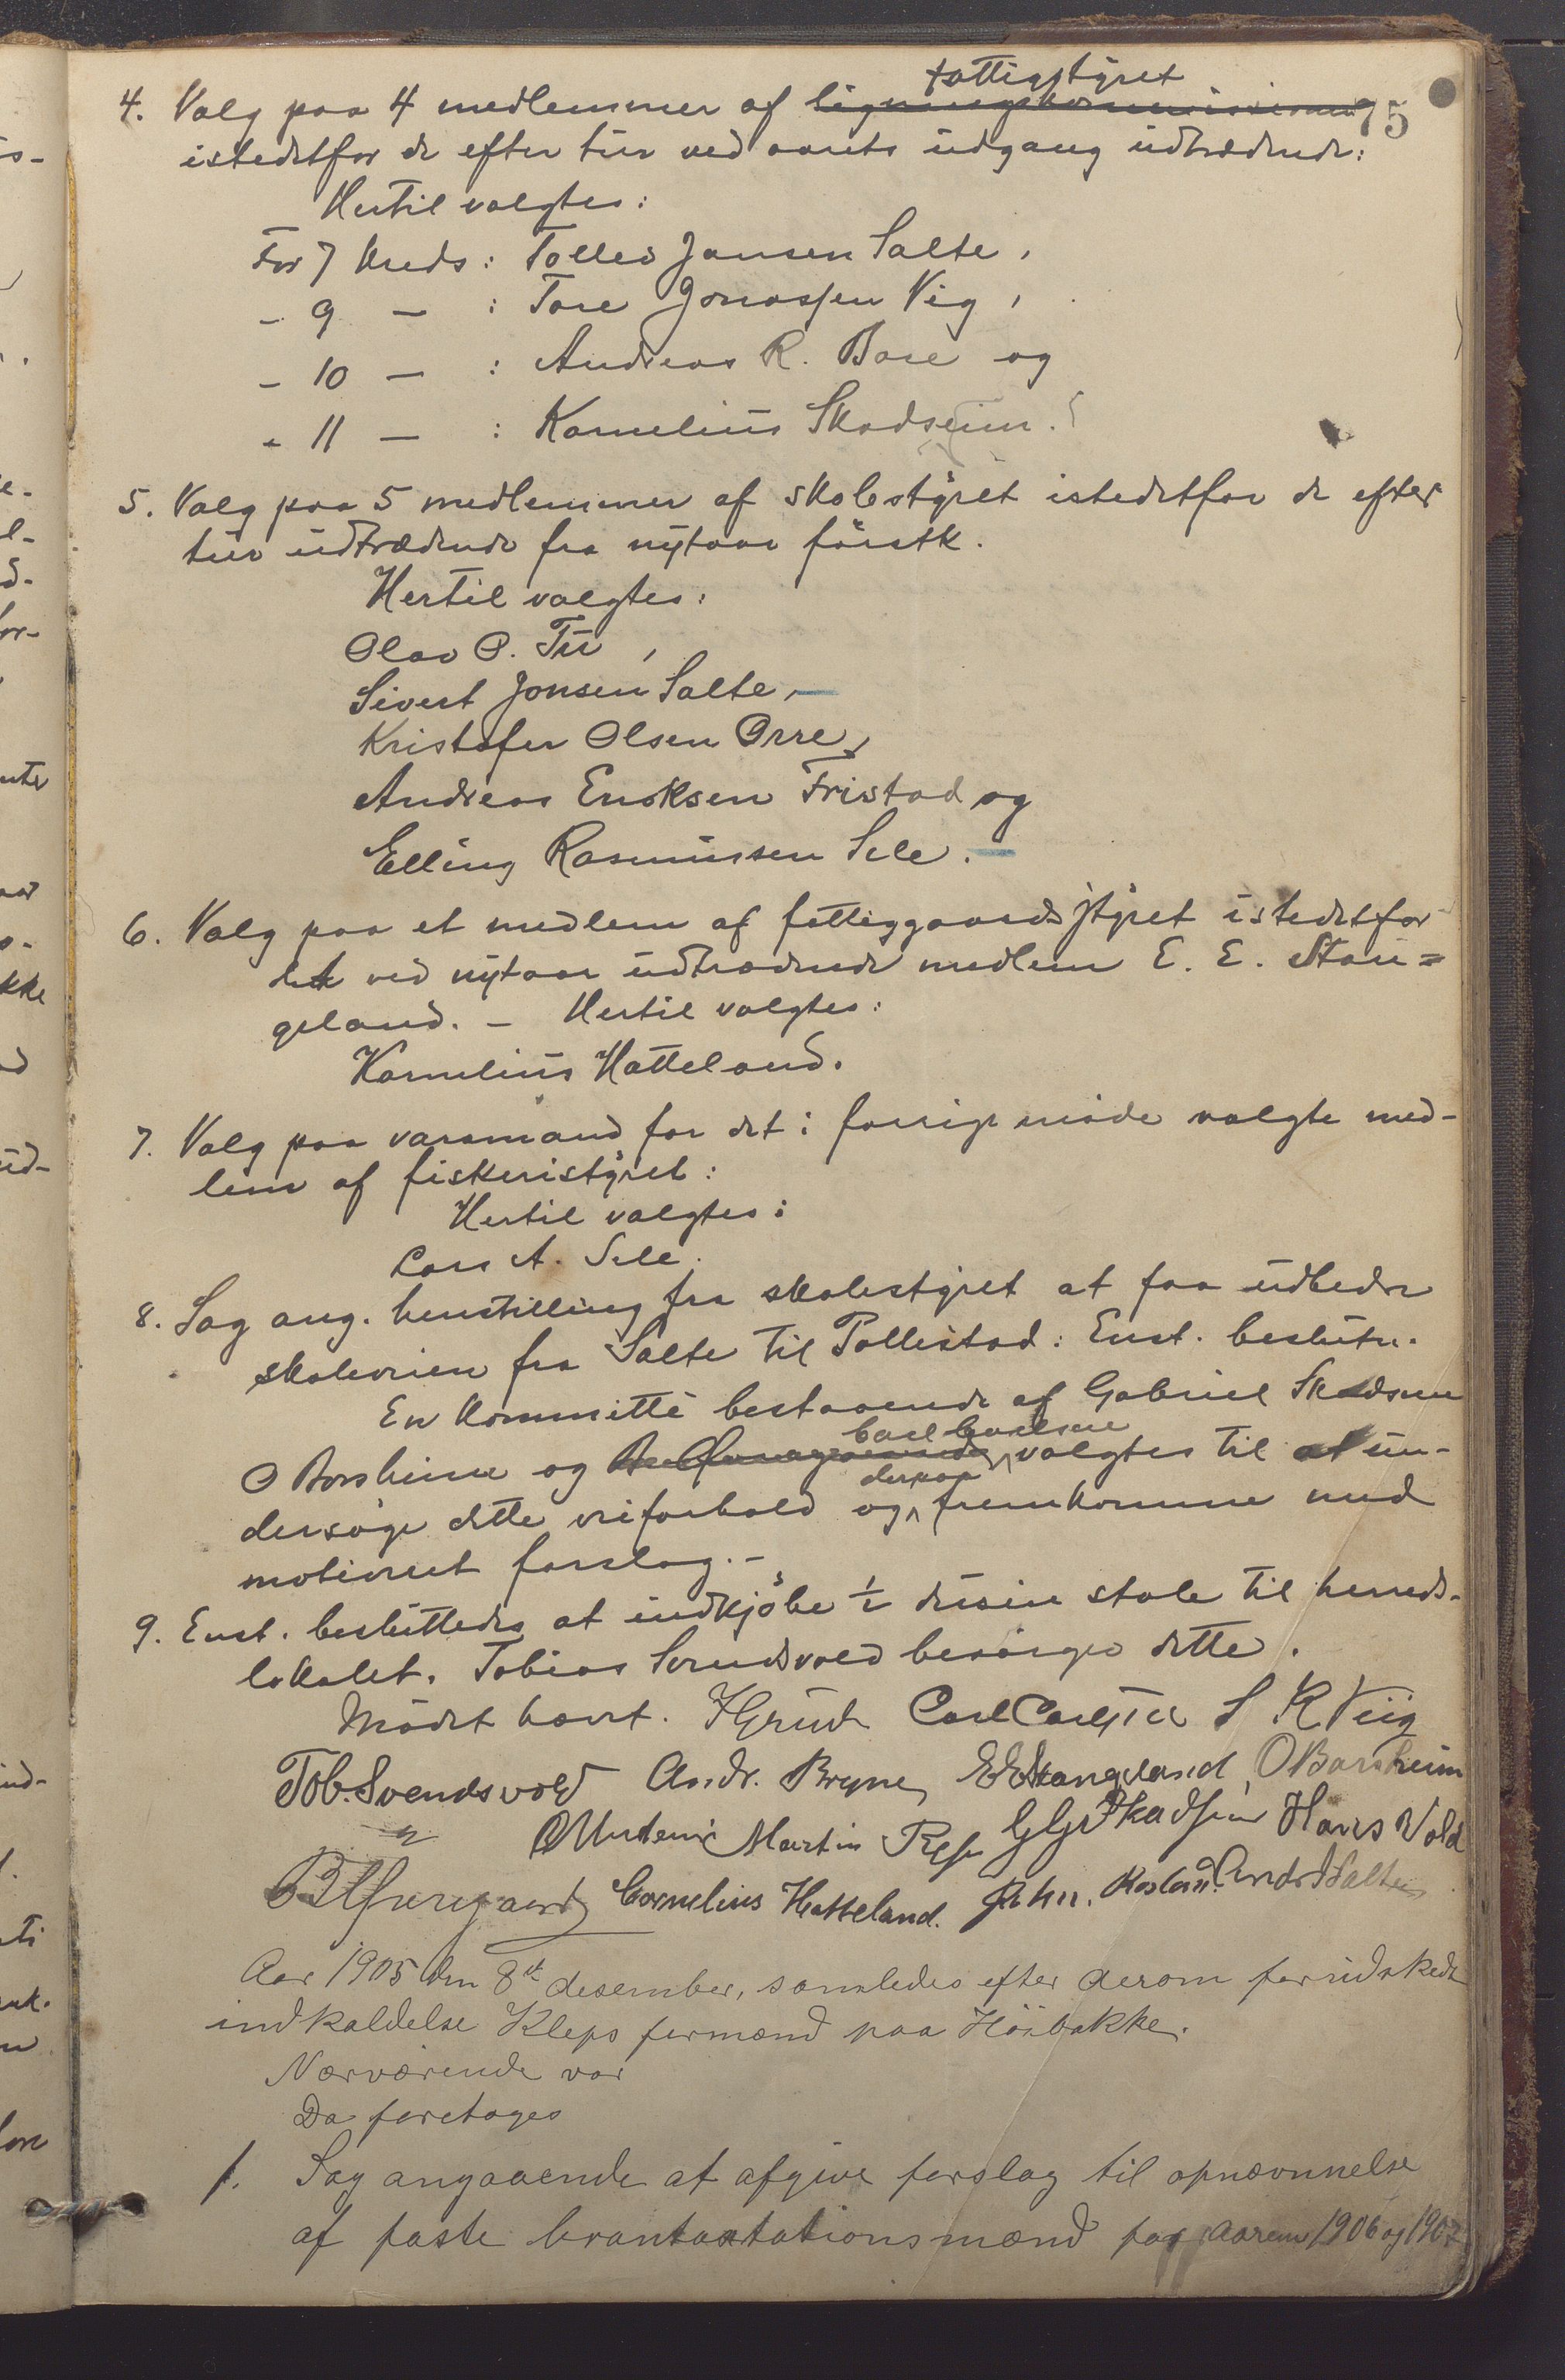 75
4. Valg paa 4 medlemmer af ligningskommissionen fattigstyret
istedetfor de efter tur ved aarets udgang udtrædende:
Hertil valgtes:
For 7 kreds: Tollev Jansen Salte,
- 9 - : Tore Jonassen Vig,
- 10 - : Andreas R. Bore og
- 11 - : Kornelius Skadseim.
5. Valg paa 5 medlemmer af skolestyret istedetfor de efter
tur udtrædende fra nytaar förstk.
Hertil valgtes:
Olav O. Tu,
Sivert Jonsen Salte,
Kristofer Olsen Orre,
Andreas Eriksen Fristad og
Elling Rasmussen Sele.
6. Valg paa et medlem af fattiggaardsstyret istedetfor
det ved nytaar udtrædende medlem E. E. Stan=
geland. - Hertil valgtes:
Kornelius Hatteland.
7. Valg paa varamand for det i forrige möde valgte med-
lem af fiskeristyret:
Hertil valgtes:
Lars A. Sele.
8. Sag ang. henstilling fra skolestyret at faa udbedre
skoleveien fra Salte til Pollestad: Enst. beslutn.
En kommitte bestaaende af Gabriel Skadsem
O Borsheim og Carl Carlsen valgtes til at un-
dersöge dette veiforhold og derpaa fremkomme med
motiveret forslag.-
9. Enst. besluttedes at indkjöbe 1/2 dusin stole til herreds-
lokalet. Tobias Svendsvold besörger dette.
Mödet hævet. Carl Carlsen S R Viig
Tob. Svendsvold Andr. Bryne E E Stangeland O Borsheim
Martin G G Skadsem Hans Vold
Cornelius Hatteland.
Aar 1905 den 8de desember, samledes efter derom forudskedt
indkaldelse Kleps formænd paa Höibakke.
Nærværende var
Da foretoges
1. Sag angaaende at afgive forslag til opnævnelse
af faste brantaxtationsmænd for aarene 1906 og 1907